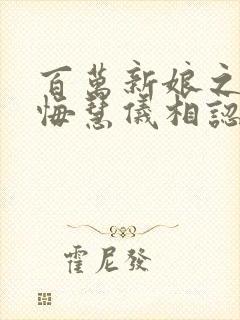 百萬新娘之
悔慧儀相認
霍尼發